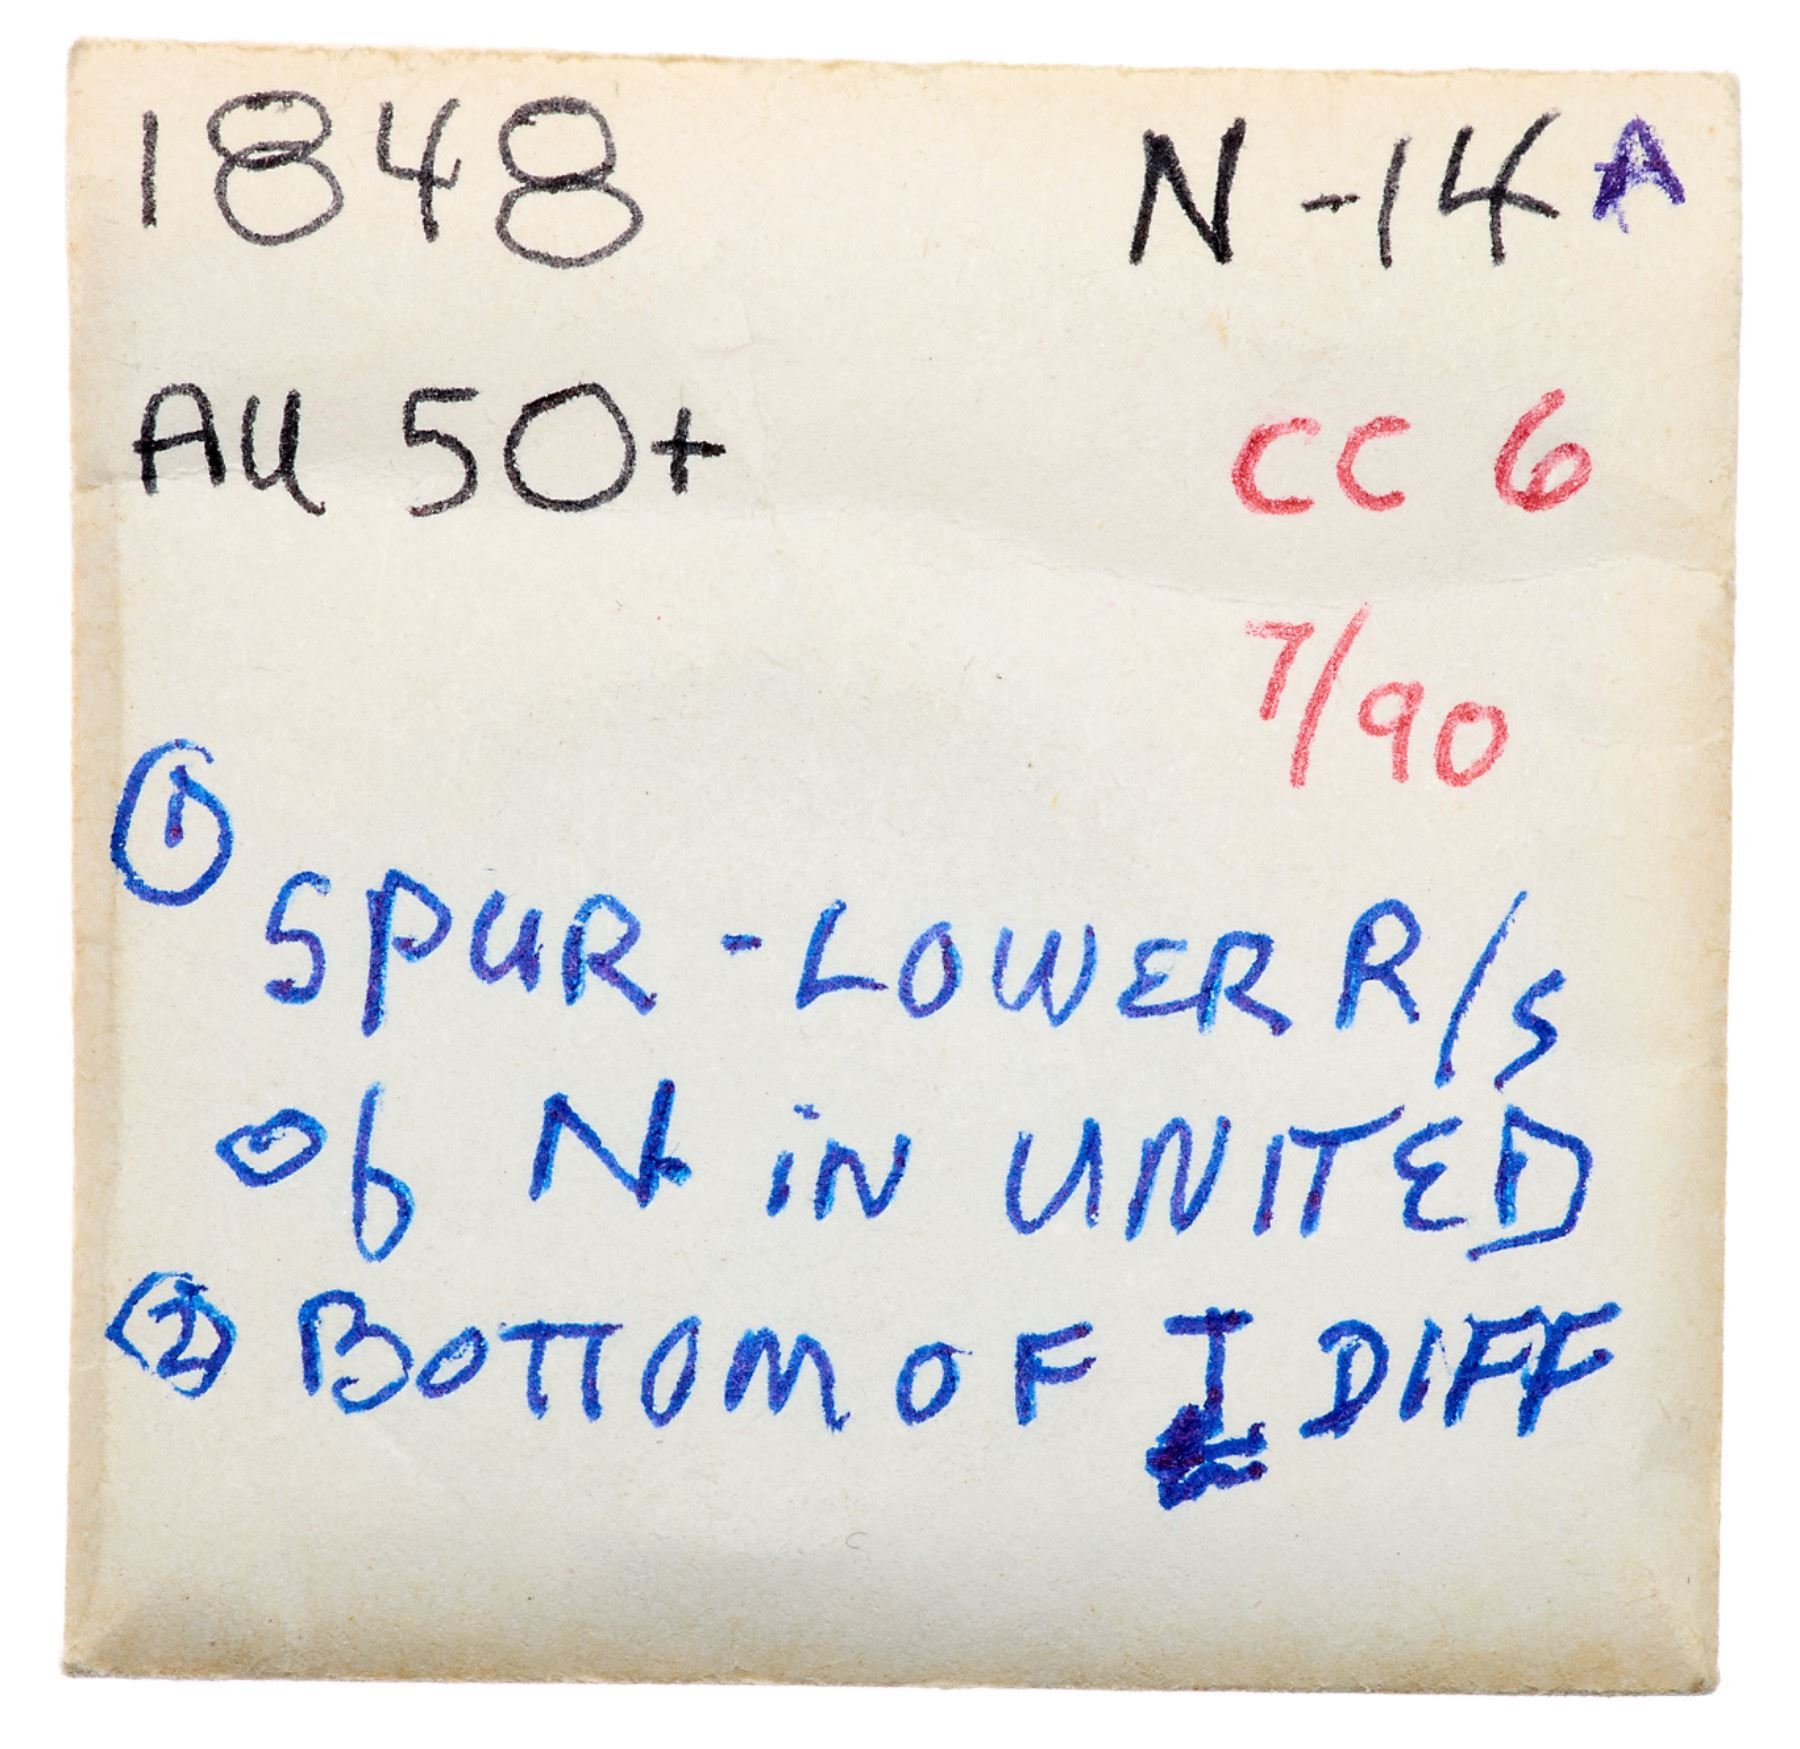 1848 N-14A
AU 50+ CC 6
7/90
① SPUR - LOWER R/S
of N iN UNITED
② BOTTOM OF I DIFF